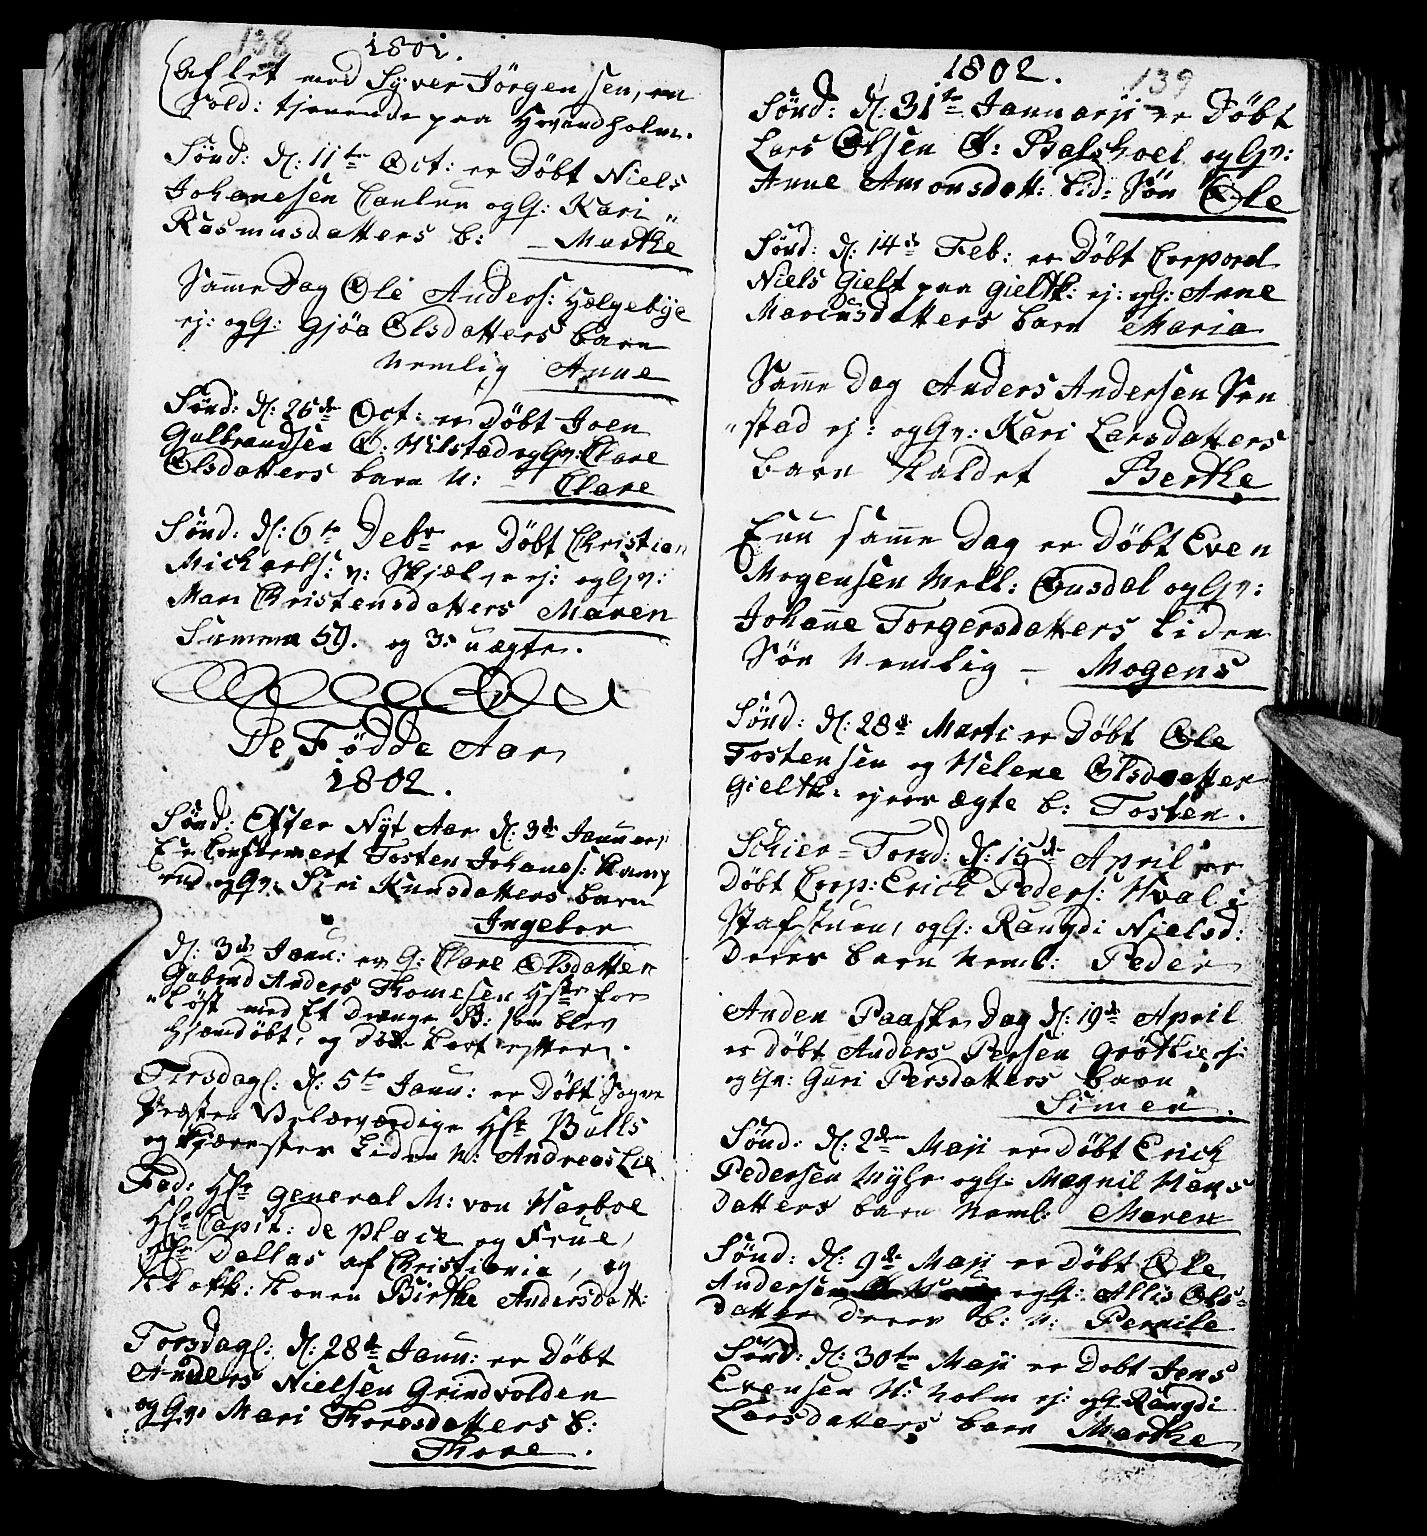 138
1801.
Aflet med Syver Jörgensen, en
Sold: tjenende paa Hovindholm.
Sönd: d: 11te Oct: er Döbt Niels
Johanesen og G: Kari
Rasmusdatters b: – Marthe
Samme Dag Ole Anders: Hælgebye
ej: og G: Gjöa Olsdatters barn
Nemlig Anne
Sönd: d: 25de Oct: er Döbt Joen
Gulbrandsen Ö: Hilstad og Gv: Clare
Olsdatters barn N: – Clare
Sönd: d: 6te Debr er Döbt Christian
Michaels: v: Skjæl ej: og Gv:
Mari Christensdatters Maren
Summa 59. og 3: uægte.
De Födde Aar
1802.
Sönd: Efter Nyt Aar d: 3de Januarj
Er Confirmert Tosten Johanes:
rud og Gv: Siri Knudsdatters barn
Ingebor
d: 3de Janu: er G: Clare Olsdatter
Gabrud Anders Thomesen Hstr for
löst med Et Drænge B: som blev
hjemdöbt, og Död kort efter.
Tirsdag: d: 5te Janu: er Döbt Sogne
Præsten Velærværdige Hr: Bulls
og kjærestes Liden N: Andreas Lie
Fad: Hr General M: von Harboe
Hr Capit: de Place og Frue,
Hr Dallas af Christiania, og
Klokk: Konen Birthe Andersdatt:
Torsdag: d: 28de Janu: er Döbt
Anders Nielsen Grindvolden
og Gv. Mari Thoresdatters b:
Thore.
139
1802.
Sönd: d: 31te Januarji er Döbt
Lars Olsen Ö: Balshoel og Gv:
Anne Amonsdatt: Lid: Sön Ole
Sönd: d: 14de Feb: er Döbt Corporal
Niels Gielt paa Gieltk: ej: og G: Anne
Mariusdatters barn Maria
Samme Dag Anders Andersen Sen
stad ej: og Gv: Kari Larsdatters
barn Kaldet Berthe
Enu samme Dag er Döbt Even
Mogensen Mell: Ousdal og Gv:
Johanne Torgersdatters Liden
Sön Nemlig – Mogens
Sönd: d: 28de Marti er Döbt Ole
Tostensen og Helene Olsdatter
Gieltk: ejeres ægte b: Tosten.
Schier-Torsd: d: 15de April er
Döbt Corp: Erich Peders: Hval i
Stafstuen, og G: Rangdi Nielsd:
Deres barn Neml: Peder
Anden Paaske Dag d: 19de April
er döbt Anders Persen Gröthe ej:
og Gv: Guri Persdatters barn
Simen.
Sönd: d: 2den Maji er döbt Erich
Pedersen Myhr og G: Magnil Hans
datters barn Neml: Maren
Sönd: d: 9de Maji er Döbt Ole
Andersen og G: Allis Ols-
datter deres b: N: Pernile
Sönd: d: 30te Maji er Döbt Jens
Evensen N: Holm ej: og G: Rangdi
Larsdatters barn Marthe